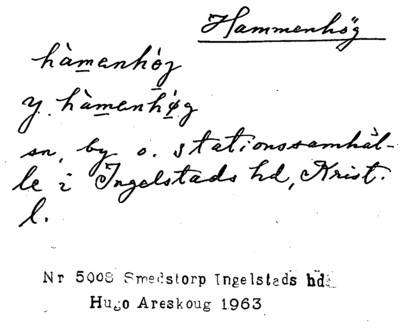 Hammenhög
hàm̲enhó̲g
y. hàm̲enhø̲g
sn, by o. stationssamhäl-
le i Ingelstads hd, Krist.
l.
Nr 5008 Smedstorp Ingelstads hd.
Hugo Areskoug 1963